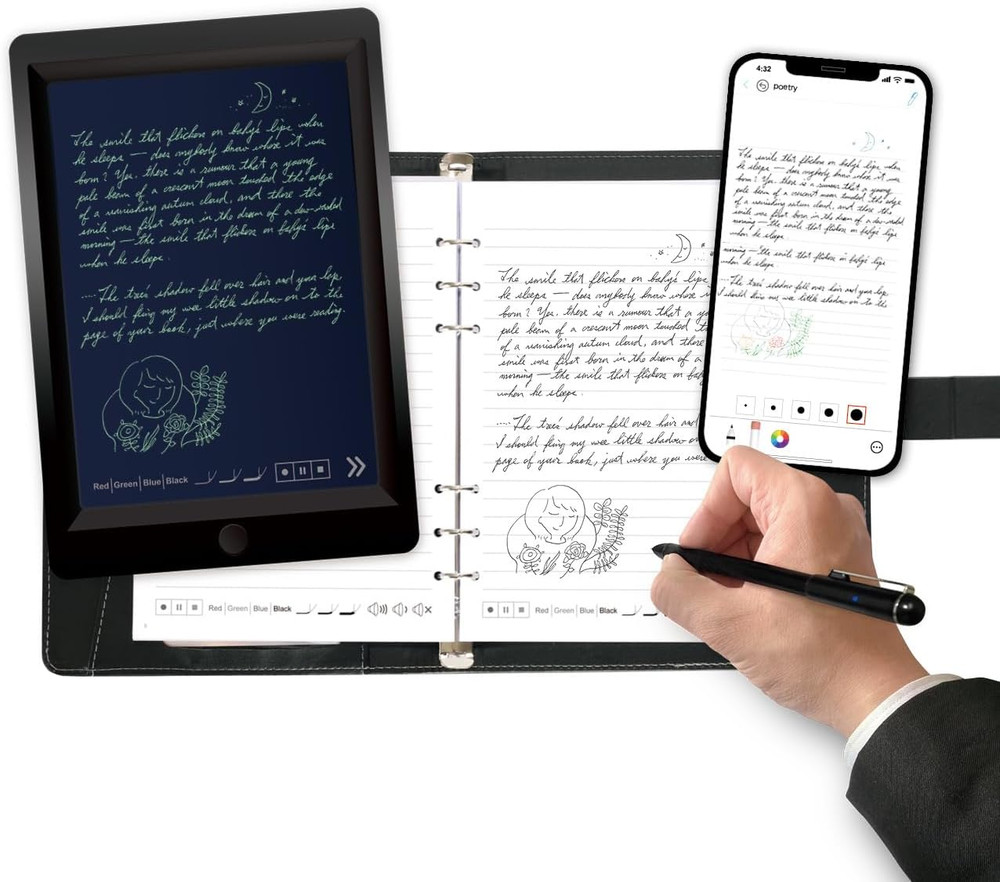 The smile that flickers on baby's lips when
he sleeps — does anybody know where it was
born? Yes, there is a rumour that a young
pale beam of a crescent moon touched the edge
of a vanishing autum cloud, and there the
smile was first born in the dream of a dew-washed
morning — the smile that flickers on baby's lips
when he sleeps.
....The tree's shadow fell over hair and your lap,
I should fling my wee little shadow on to the
page of your book, just where you were reading.
Red|Green|Blue|Black
Red|Green|Blue|Black
The smile that flickers on baby's lips
he sleeps — does anybody know where i
born? Yes, there is a rumour that a yo
pale beam of a crescent moon touched t
of a vanishing autum cloud, and there
smile was first born in the dream of a
morning — the smile that flickers on bab
when he sleeps.
....The tree's shadow fell over hair and
I should fling my wee little shadow on
page of your book, just where you were
Red|Green|Blue|Black
4:32
poetry
The smile that flickers on baby's lips when
he sleeps — does anybody know where it was
born? Yes, there is a rumour that a young
pale beam of a crescent moon touched the edge
of a vanishing autum cloud, and there the
smile was first born in the dream of a dew-washed
morning — the smile that flickers on baby's lips
when he sleeps.
morning — the smile that flickers on baby's lips
when he sleeps.
....The tree's shadow fell over hair and your lap,
I should fling my wee little shadow on to the